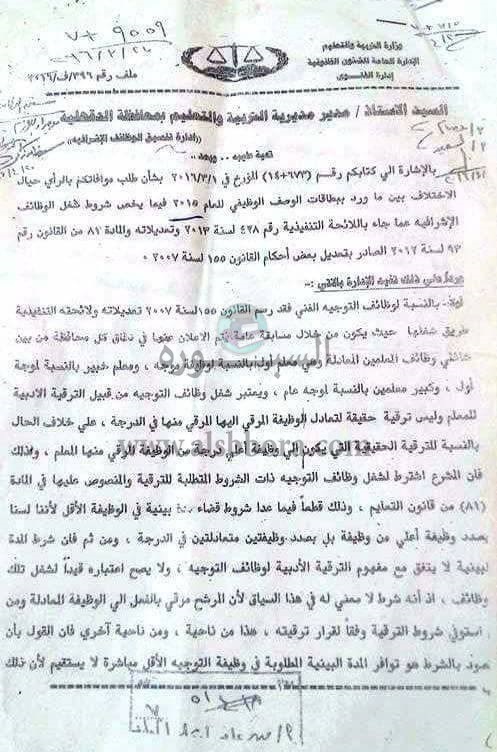 ٧+٩٠٥٩
وزارة التربية والتعليم
الإدارة العامة للشئون القانونية
إدارة الفتاوى
ملف رقم ٣٩٦/ف/٢٠١٦
السيد الأستاذ / مدير مديرية التربية والتعليم بمحافظة الدقهلية
"إدارة تنسيق الوظائف الإشرافية"
تحية طيبة .. وبعد
بالإشارة الي كتابكم رقم (٦٧٣+١٤) المؤرخ في ٢٠١٦/٣/١ بشأن طلب موافاتكم بالرأي حيال
الاختلاف بين ما ورد ببطاقات الوصف الوظيفي للعام ٢٠١٥ فيما يخص شروط شغل الوظائف
الإشرافية عما جاء باللائحة التنفيذية رقم ٤٢٨ لسنة ٢٠١٣ وتعديلاته والمادة ٨١ من القانون رقم
٩٣ لسنة ٢٠١٢ الصادر بتعديل بعض أحكام القانون ١٥٥ لسنة ٢٠٠٧
ورداً علي ذلك تفيد الإدارة بالآتي :-
أولاً:- بالنسبة لوظائف التوجيه الفني فقد رسم القانون ١٥٥ لسنة ٢٠٠٧ تعديلاته ولائحته التنفيذية
طريق شغلها حيث يكون من خلال مسابقة عامة يتم الاعلان عنها في نطاق كل محافظة من بين
شاغلي وظائف المعلمين المعادلة وهي معلم أول بالنسبة لوظيفة موجه ، ومعلم خبير بالنسبة لموجه
أول ، وكبير معلمين بالنسبة لموجه عام ، ويعتبر شغل وظائف التوجيه من قبيل الترقية الادبية
للمعلم وليس ترقية حقيقة لتعادل الوظيفة المرقي اليها المرقي منها في الدرجة ، علي خلاف الحال
بالنسبة للترقية الحقيقية التي يكون إلي وظيفة أعلي درجة من الوظيفة المرقي منها المعلم ، ولذلك
فان المشرع اشترط لشغل وظائف التوجيه ذات الشروط المتطلبة للترقية والمنصوص عليها في المادة
(٨١) من قانون التعليم ، وذلك قطعاً فيما عدا شروط قضاء مدة بينية في الوظيفة الأقل لأننا لسنا
بصدد وظيفة أعلي من وظيفة بل بصدد وظيفتين متعادلتين في الدرجة ، ومن ثم فان شرط المدة
لبينية لا يتفق مع مفهوم الترقية الأدبية لوظائف التوجيه ، ولا يصح اعتباره قيداً لشغل تلك
وظائف ، اذ أنه شرط لا معني له في هذا السياق لأن المرشح مرقي بالفعل الي الوظيفة المعادلة ومن
استوفي شروط الترقية وفقاً لقرار ترقيته ، هذا من ناحية ، ومن ناحية آخري فان القول بأن
صود بالشرط هو توافر المدة البينية المطلوبة في وظيفة التوجيه الأقل مباشرة لا يستقيم لأن ذلك
السبورة
www.alshbora.com